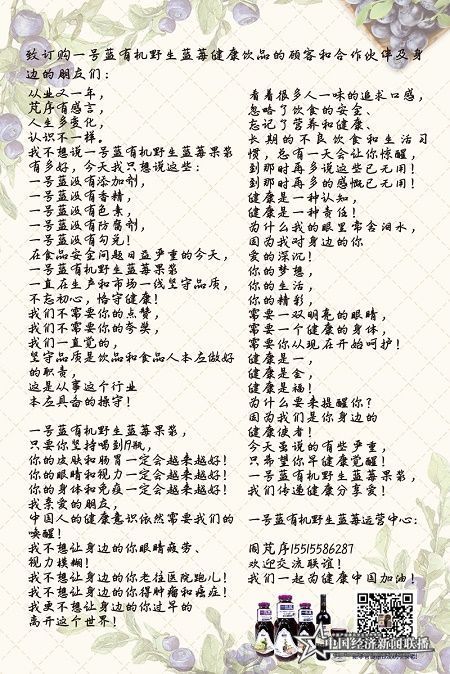 致订购一号蓝有机野生蓝莓健康饮品的顾客和合作伙伴及身
边的朋友们：
从业又一年，
芃序有感言，
人生多变化，
认识不一样。
我不想说一号蓝有机野生蓝莓果浆
有多好，今天我只想说这些：
一号蓝没有添加剂，
一号蓝没有香精，
一号蓝没有色素，
一号蓝没有防腐剂，
一号蓝没有勾兑！
在食品安全问题日益严重的今天，
一号蓝有机野生蓝莓果浆
一直在生产和市场一线坚守品质，
不忘初心，恪守健康！
我们不需要你的点赞，
我们不需要你的夸奖，
我们一直觉的，
坚守品质是饮品和食品人本应做好
的职责，
这是从事这个行业
本应具备的操守！
一号蓝有机野生蓝莓果浆，
只要你坚持喝到19瓶，
你的皮肤和肠胃一定会越来越好！
你的眼睛和视力一定会越来越好！
你的身体和免疫一定会越来越好！
我亲爱的朋友，
中国人的健康意识依然需要我们的
唤醒！
我不想让身边的你眼睛疲劳、
视力模糊！
我不想让身边的你老往医院跑儿！
我不想让身边的你得肿瘤和癌症！
我更不想让身边的你过早的
离开这个世界！
看着很多人一味的追求口感，
忽略了饮食的安全、
忘记了营养和健康、
长期的不良饮食和生活习
惯，总有一天会让你惊醒，
到那时再多说这些已无用！
到那时再多的感慨已无用！
健康是一种认知，
健康是一种责任！
为什么我的眼里常含泪水，
因为我对身边的你
爱的深沉！
你的梦想，
你的生活，
你的精彩，
需要一双明亮的眼睛，
需要一个健康的身体，
需要你从现在开始呵护！
健康是一，
健康是金，
健康是福！
为什么要来提醒你？
因为我们是你身边的
健康使者！
今天虽说的有些严重，
只希望你早健康觉醒！
一号蓝有机野生蓝莓果浆，
我们传递健康分享爱！
一号蓝有机野生蓝莓运营中心：
周芃序15515586287
欢迎交流联谊！
我们一起为健康中国加油！
中国经济新闻联播